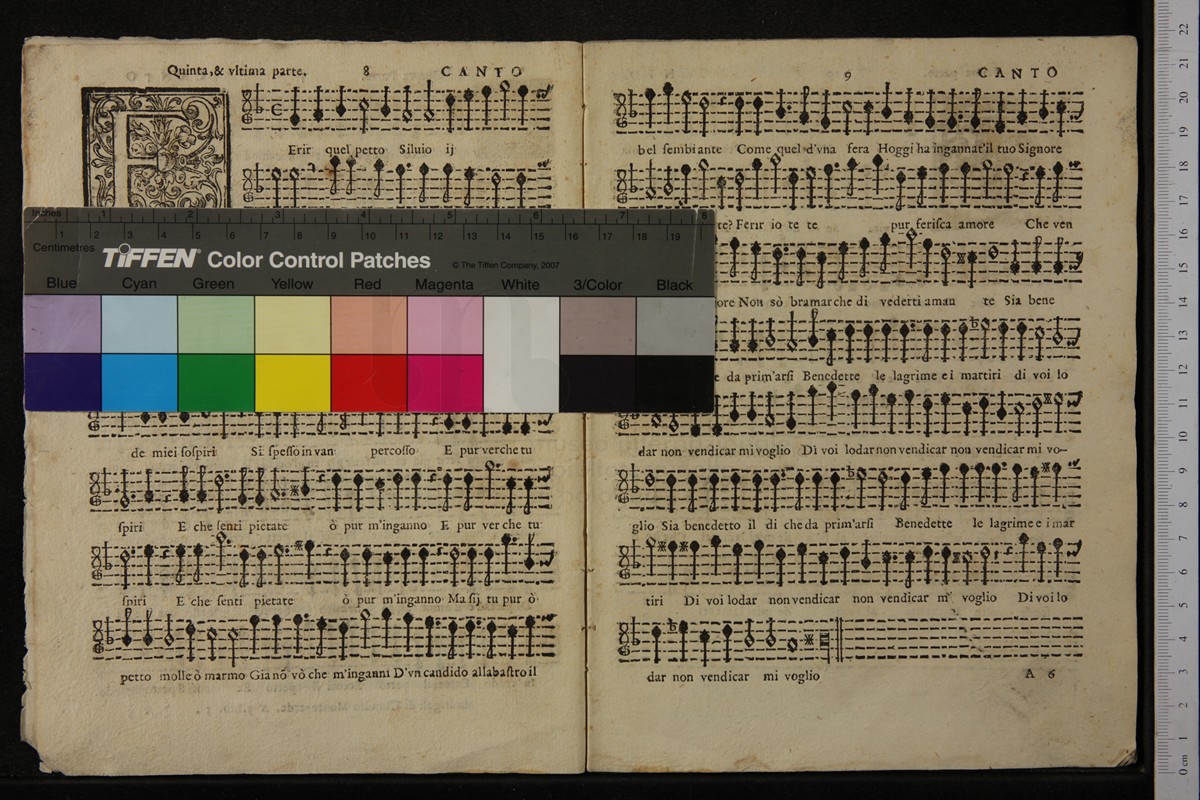 Quinta,& vltima parte. 8 CANTO
F
Erir quel petto Siluio ij
de miei sospiri Si spesso in van percosso E pur verche tu
spiri E che senti pietate ò pur m'inganno E pur ver che tu
spiri E che senti pietate ò pur m'inganno Ma sij tu pur ò
petto molle ò marmo Gia nõ vò che m'inganni D'vn candido allabastro il
9 CANTO
bel sembiante Come quel d'vna fera Hoggi ha ingannat'il tuo Signore
te? Ferir io te te pur ferisca amore Che ven
ore Non sò bramar che di vederti aman te Sia bene
e da prim'arsi Benedette le lagrime e i martiri di voi lo
dar non vendicar mi voglio Di voi lodar non vendicar non vendicar mi vo-
glio Sia benedetto il di che da prim'arsi Benedette le lagrime e i mar
tiri Di voi lodar non vendicar non vendicar m' voglio Di voi lo
dar non vendicar mi voglio A 6
Inches 1 2 3 4 5 6 7 8
Centimetres 1 2 3 4 5 6 7 8 9 10 11 12 13 14 15 16 17 18 19
TIFFEN® Color Control Patches © The Tiffen Company, 2007
Blue Cyan Green Yellow Red Magenta White 3/Color Black
22
21
20
19
18
17
16
15
14
13
12
11
10
9
8
7
6
5
4
3
2
1
0 cm